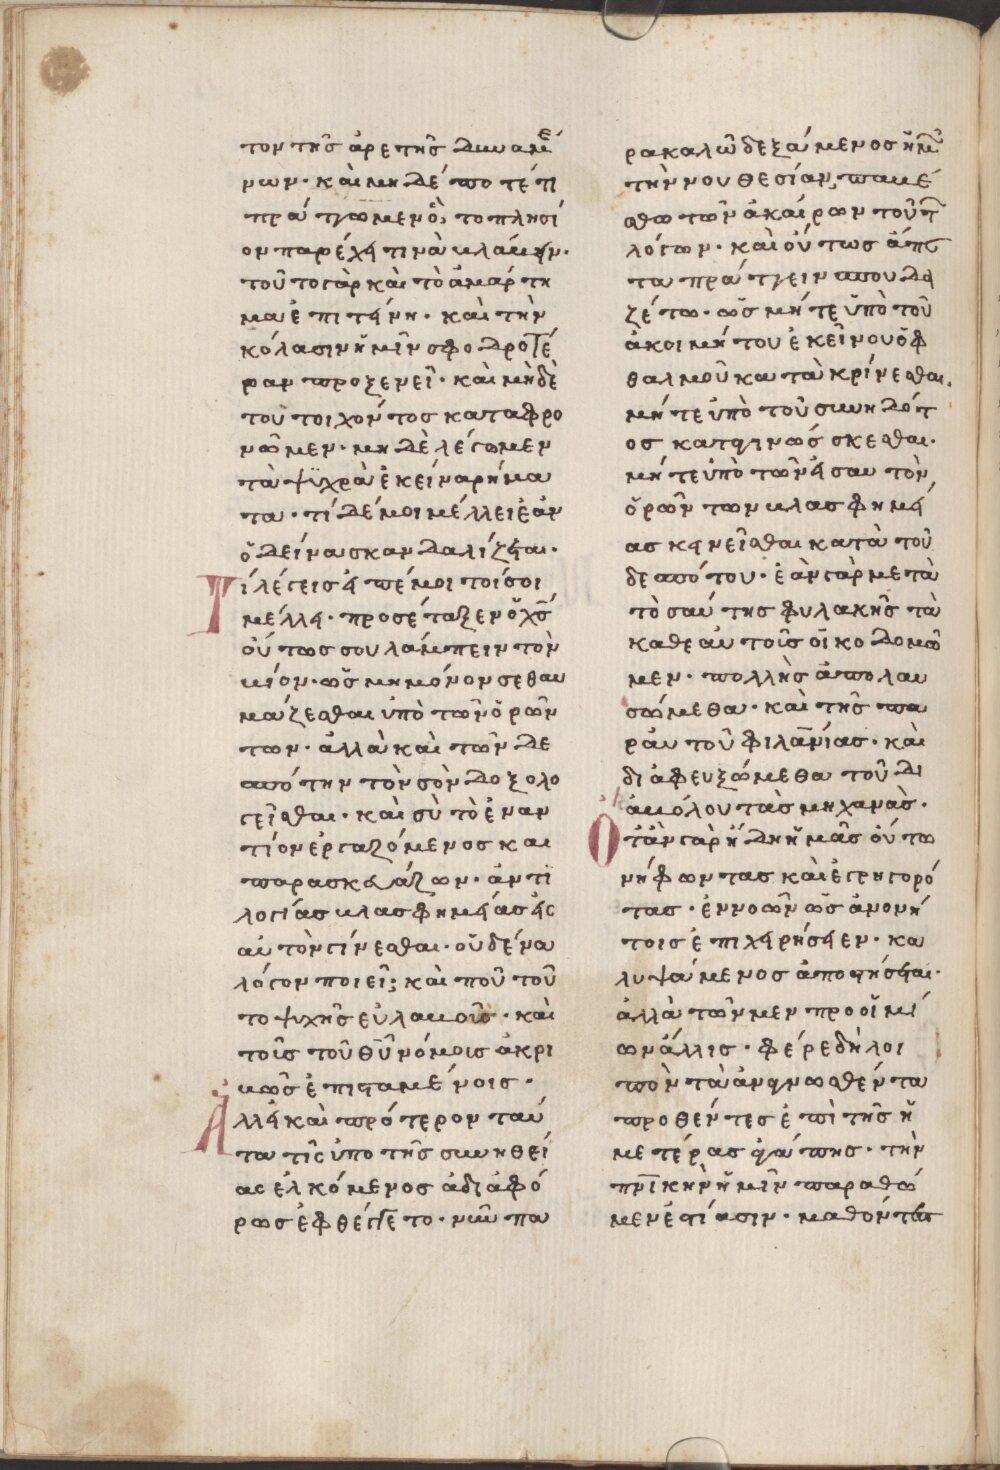 τον τῆς ἀρετῆς δυναμέ
νων· καὶ μηδέποτέ τι
πράττωμεν ὃ τὸ πλησί
ον παρέχει τινὰ βλάβην·
τοῦτο γὰρ καὶ τὸ ἁμάρτη
μα ἐπιτείνει· καὶ τὴν
κόλασιν ἡμῖν σφοδροτέ
ραν προξενεῖ· καὶ μὴ δὲ
τοῦ τοιχόντος καταφρο
νῶμεν· μὴ δὲ λέγωμεν
τὰ ψυχρὰ ἐκεῖνα ρήμα
τα· τί δέ μοι μέλλει ἐὰν
ὁ δεῖνα σκανδαλίζεται·
Τί λέγεις εἰπέ μοι τοί σοι
μέλλει· προσέταξεν ὁ χς
οὕτως σου λάμπειν τὸν
βίον· ὡς μὴ μόνον σε θαυ
μάζεσθαι ὑπὸ τῶν ὁρών
των· ἀλλὰ καὶ τῶν δε
σπότην τὸν σὸν δοξολο
γεῖσθαι· καὶ σὺ τὸ ἐναν
τίον ἐργαζόμενος και
παρασκευάζων· ἀντὶ
λογίας βλασφημίας εἰς
αὐτὸν γίνεσθαι· οὐδένα
λόγον ποιεῖ; καὶ ποῦ τοῦ
το ψυχῆς εὐλαβοῦς· καὶ
τοῖς τοῦ θυ νόμοις ἀκρι
βῶς ἐπισταμένοις·
Ἀλλ εἰ καὶ πρότερον ταύ
τα τίς ὑπὸ τῆς συνηθεί
ας ἑλκόμενος ἀδιαφό
ρως ἐφθέγγετο· νῦν πα
ρακαλῶ δεξάμενος ἡμῶν
τὴν νουθεσίαν, παυέ
σθω τῶν ἀκαίρων τούτων
λόγων· καὶ οὕτως ἅπαν
τα πράττειν σπουδα
ζέτω· ὡς μήτε ὑπὸ τοῦ
ἀκοιμήτου ἐκείνου ὀφ
θαλμοῦ κατακρίνεσθαι.
μήτε ὑπὸ τοῦ συνηδότ
ος καταγινώσκεσθαι·
μήτε ὑπὸ τῶν εἰς αυτὸν
ὁρῶντων βλασφημί
ας κινεῖσθαι κατὰ τοῦ
δεσπότου· ἐὰν γὰρ μετὰ
τοσαύτης φυλακῆς τὰ
καθεαυτοῖς οἰκοδομῶ
μεν· πολλῆς ἀπολαυ
σώμεθα· καὶ τῆς πα
ραυτοῦ φιλανίας· καὶ
διαφευξώμεθα τοῦ δι
αβόλου τὰς μηχανάς·
Ὁτὰν γὰρ ἤδη ἡμᾶς οὕτω
νήφωντας καὶ ἐγρηγορό
τας· ἐννοῶν ὡς ἀνονή
τοις ἐπιχειρήσειεν· κα
λυψάμενος ἀποστήσεται·
ἀλλὰ τῶν μεν προοιμί
ων ἅλλις· φέρε δὴ λοι
πὸν τὰ ἀναγνωσθέντα
προθέντες ἐπὶ τῆς ἡ
μετέρας ἀγάπης· τὴν
πνικὴν ἡμῖν παραθώ
μεν ἑστίασιν· μαθόντες